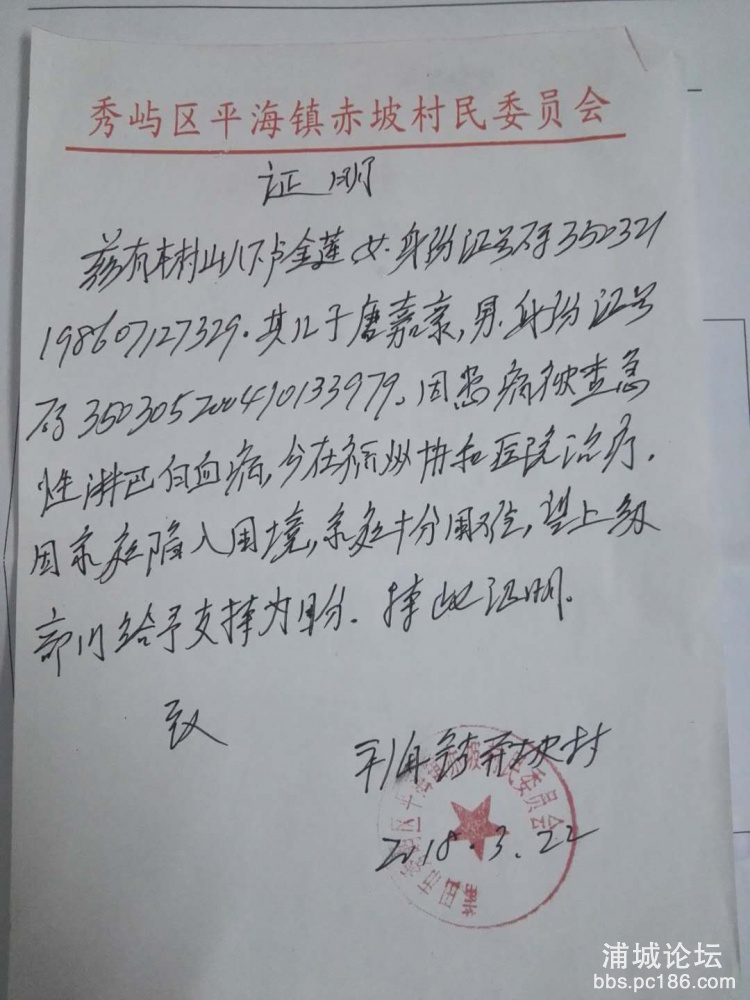 秀屿区平海镇赤坡村民委员会
证明
兹有本村山下卢金莲 女.身份证号码350321
198607127329.其儿子唐嘉豪,男.身份证号
码350305200410133979.因患病被查急
性淋巴白血病,今在福州协和医院治疗.
因家庭陷入困境,家庭十分困难,望上级
部门给予支持为盼.持此证明.
致
平海镇赤坡村
2018.3.22
莆田市秀屿区平海镇赤坡村民委员会
浦城论坛
bbs.pc186.com